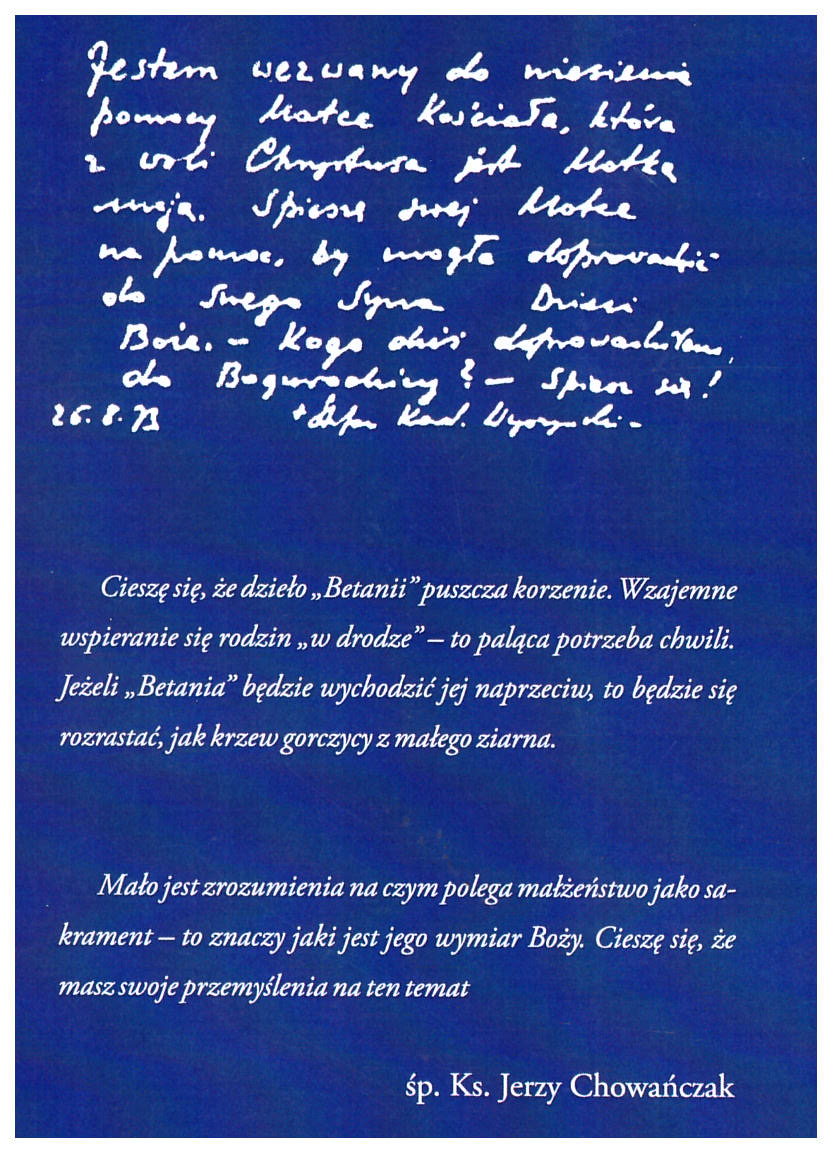 Jestem wezwany do niesienia
pomocy Matce Kościoła, która
z woli Chrystusa jest Matką
moją. Spieszę swej Matce
na pomoc, by mogła doprowadzić
do Swego Syna Dzieci
Boże. – Kogo dziś doprowadziłem,
do Bogurodzicy? – Spiesz się!
26.8.73 + Stefan Kard. Wyszyński –
Cieszę się, że dzieło „Betanii” puszcza korzenie. Wzajemne
wspieranie się rodzin „w drodze” – to paląca potrzeba chwili.
Jeżeli „Betania” będzie wychodzić jej naprzeciw, to będzie się
rozrastać, jak krzew gorczycy z małego ziarna.
Mało jest zrozumienia na czym polega małżeństwo jako sa-
krament – to znaczy jaki jest jego wymiar Boży. Cieszę się, że
masz swoje przemyślenia na ten temat
śp. Ks. Jerzy Chowańczak